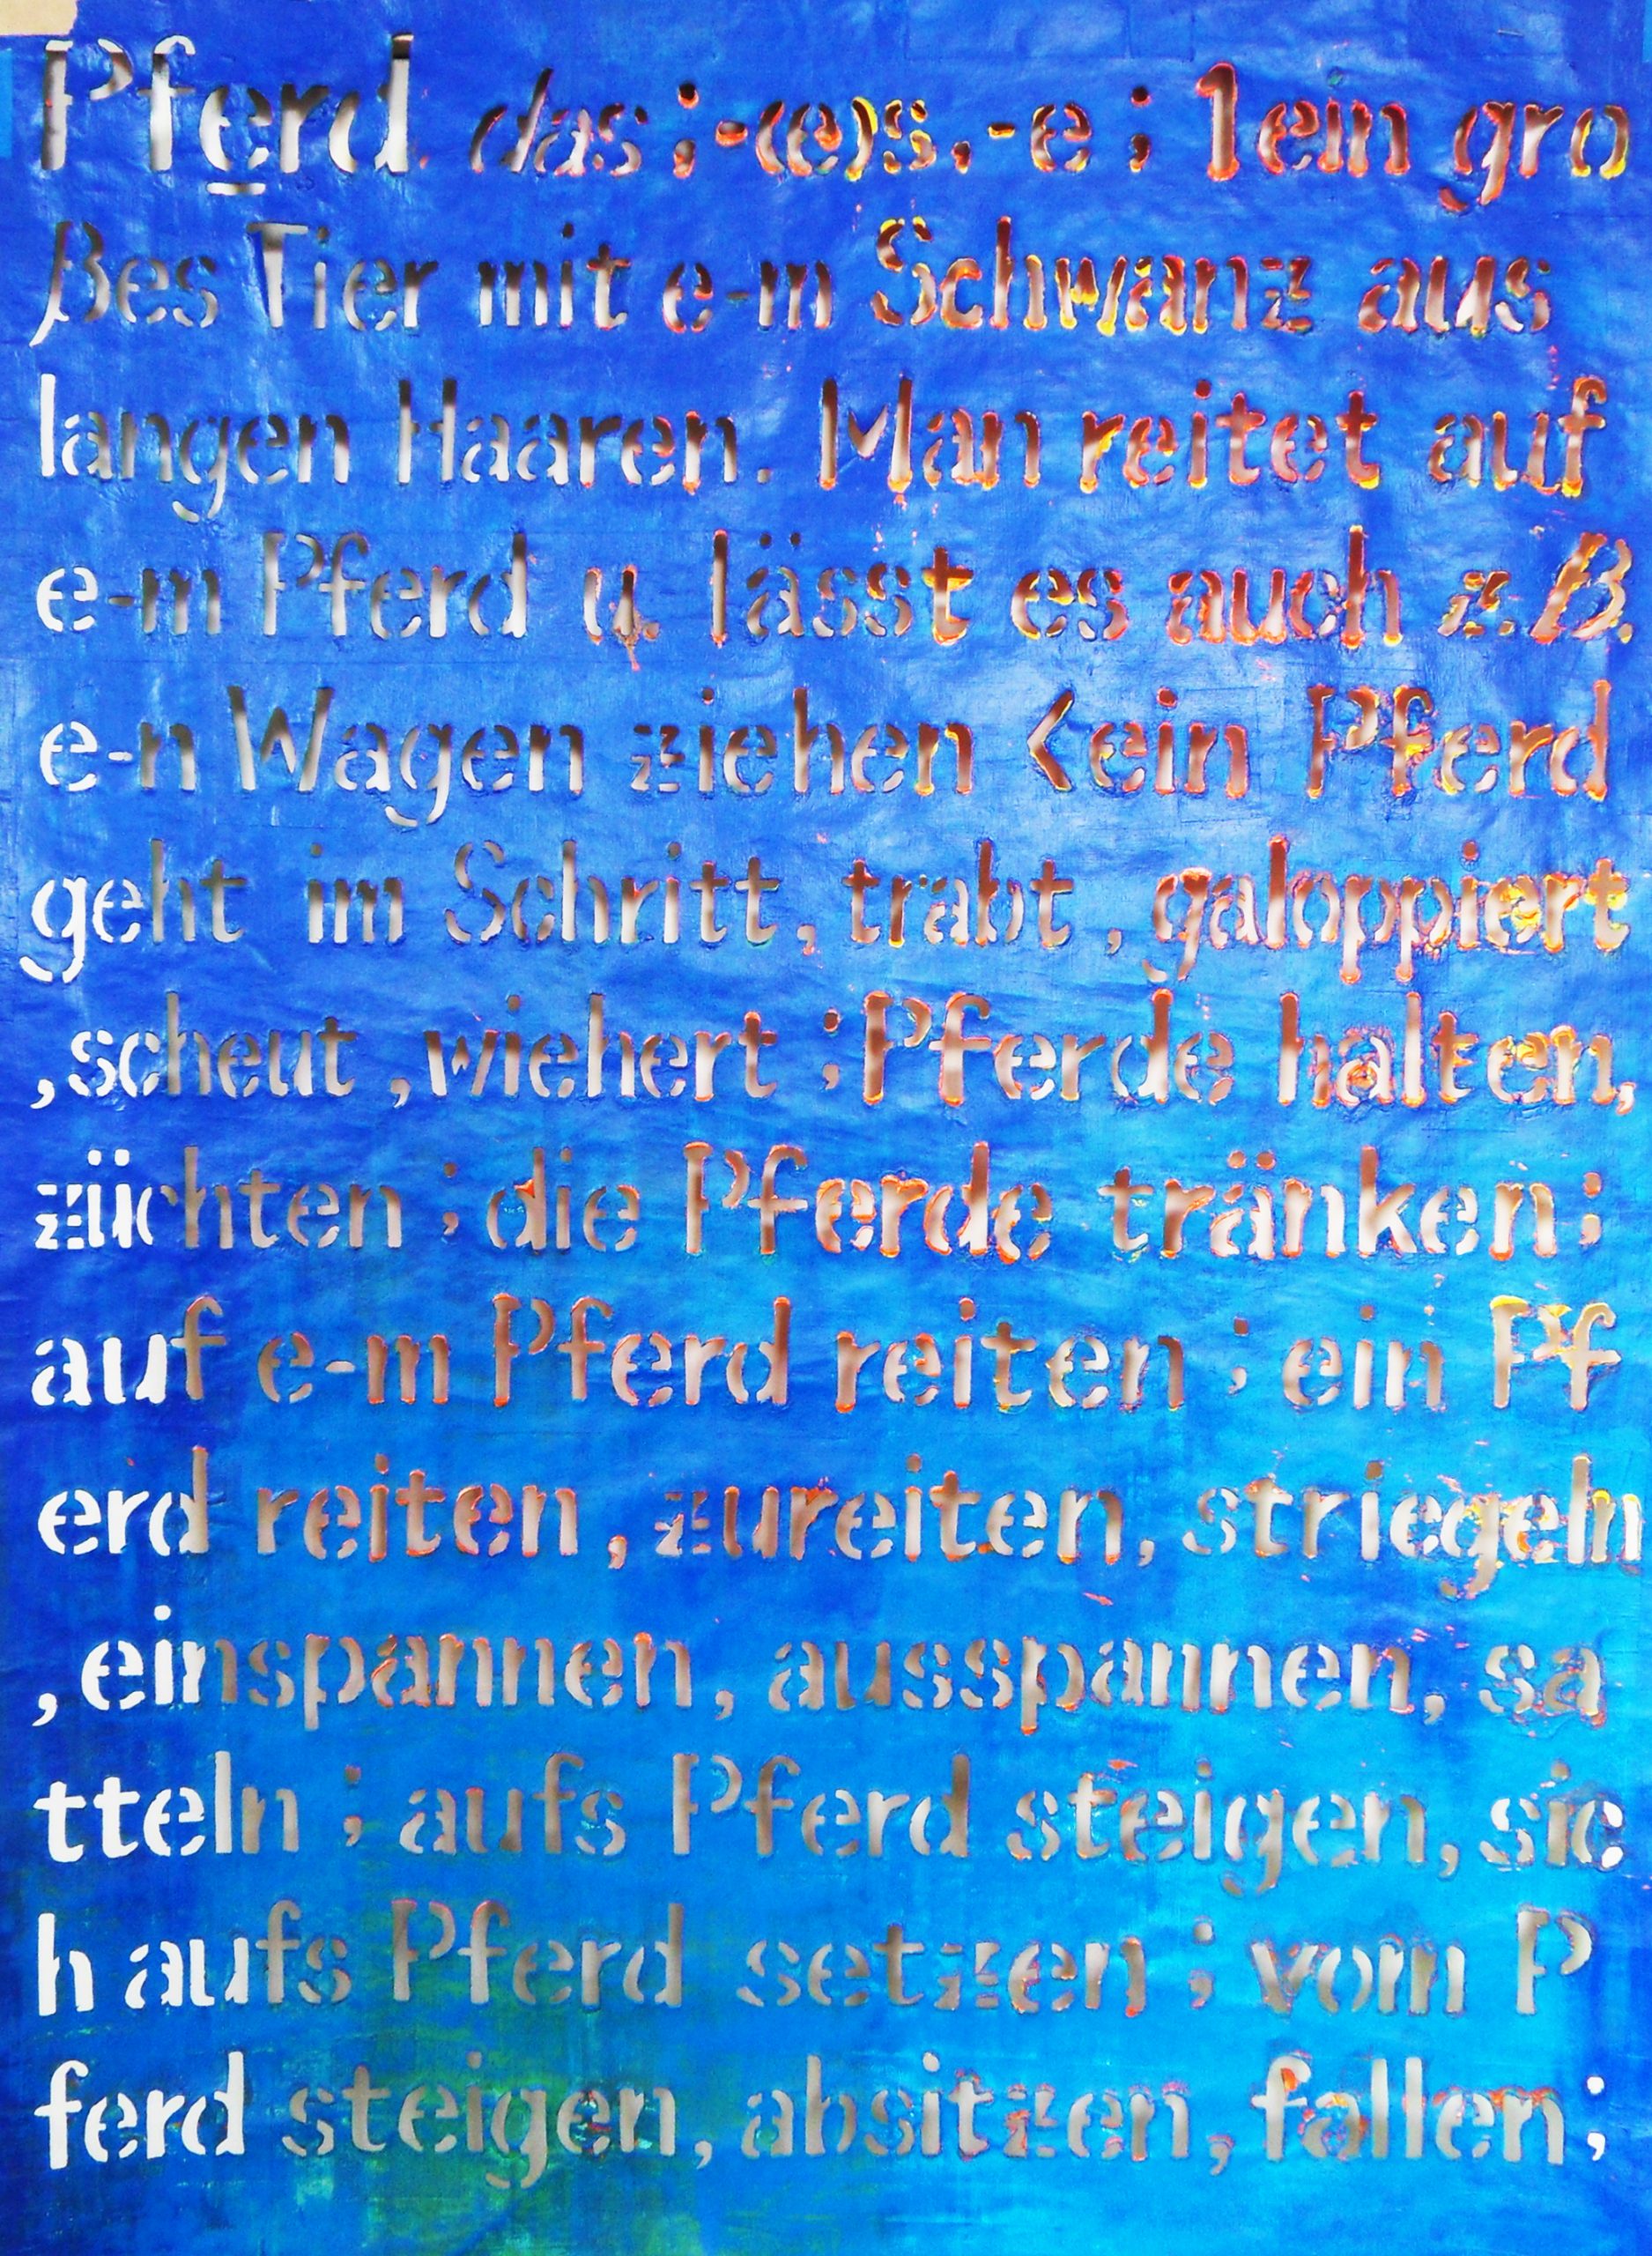 Pferd das ; -(e)s, -e ; 1ein gro
ßes Tier mit e-m Schwanz aus
langen Haaren. Man reitet auf
e-m Pferd u. lässt es auch z.B.
e-n Wagen ziehen <ein Pferd
geht im Schritt, trabt , galoppiert
,scheut ,wiehert ; Pferde halten,
züchten ; die Pferde tränken ;
auf e-m Pferd reiten ; ein Pf
erd reiten , zureiten, striegeln
, einspannen, ausspannen, sa
tteln ; aufs Pferd steigen, sic
h aufs Pferd setzen ; vom P
ferd steigen, absitzen, fallen ;